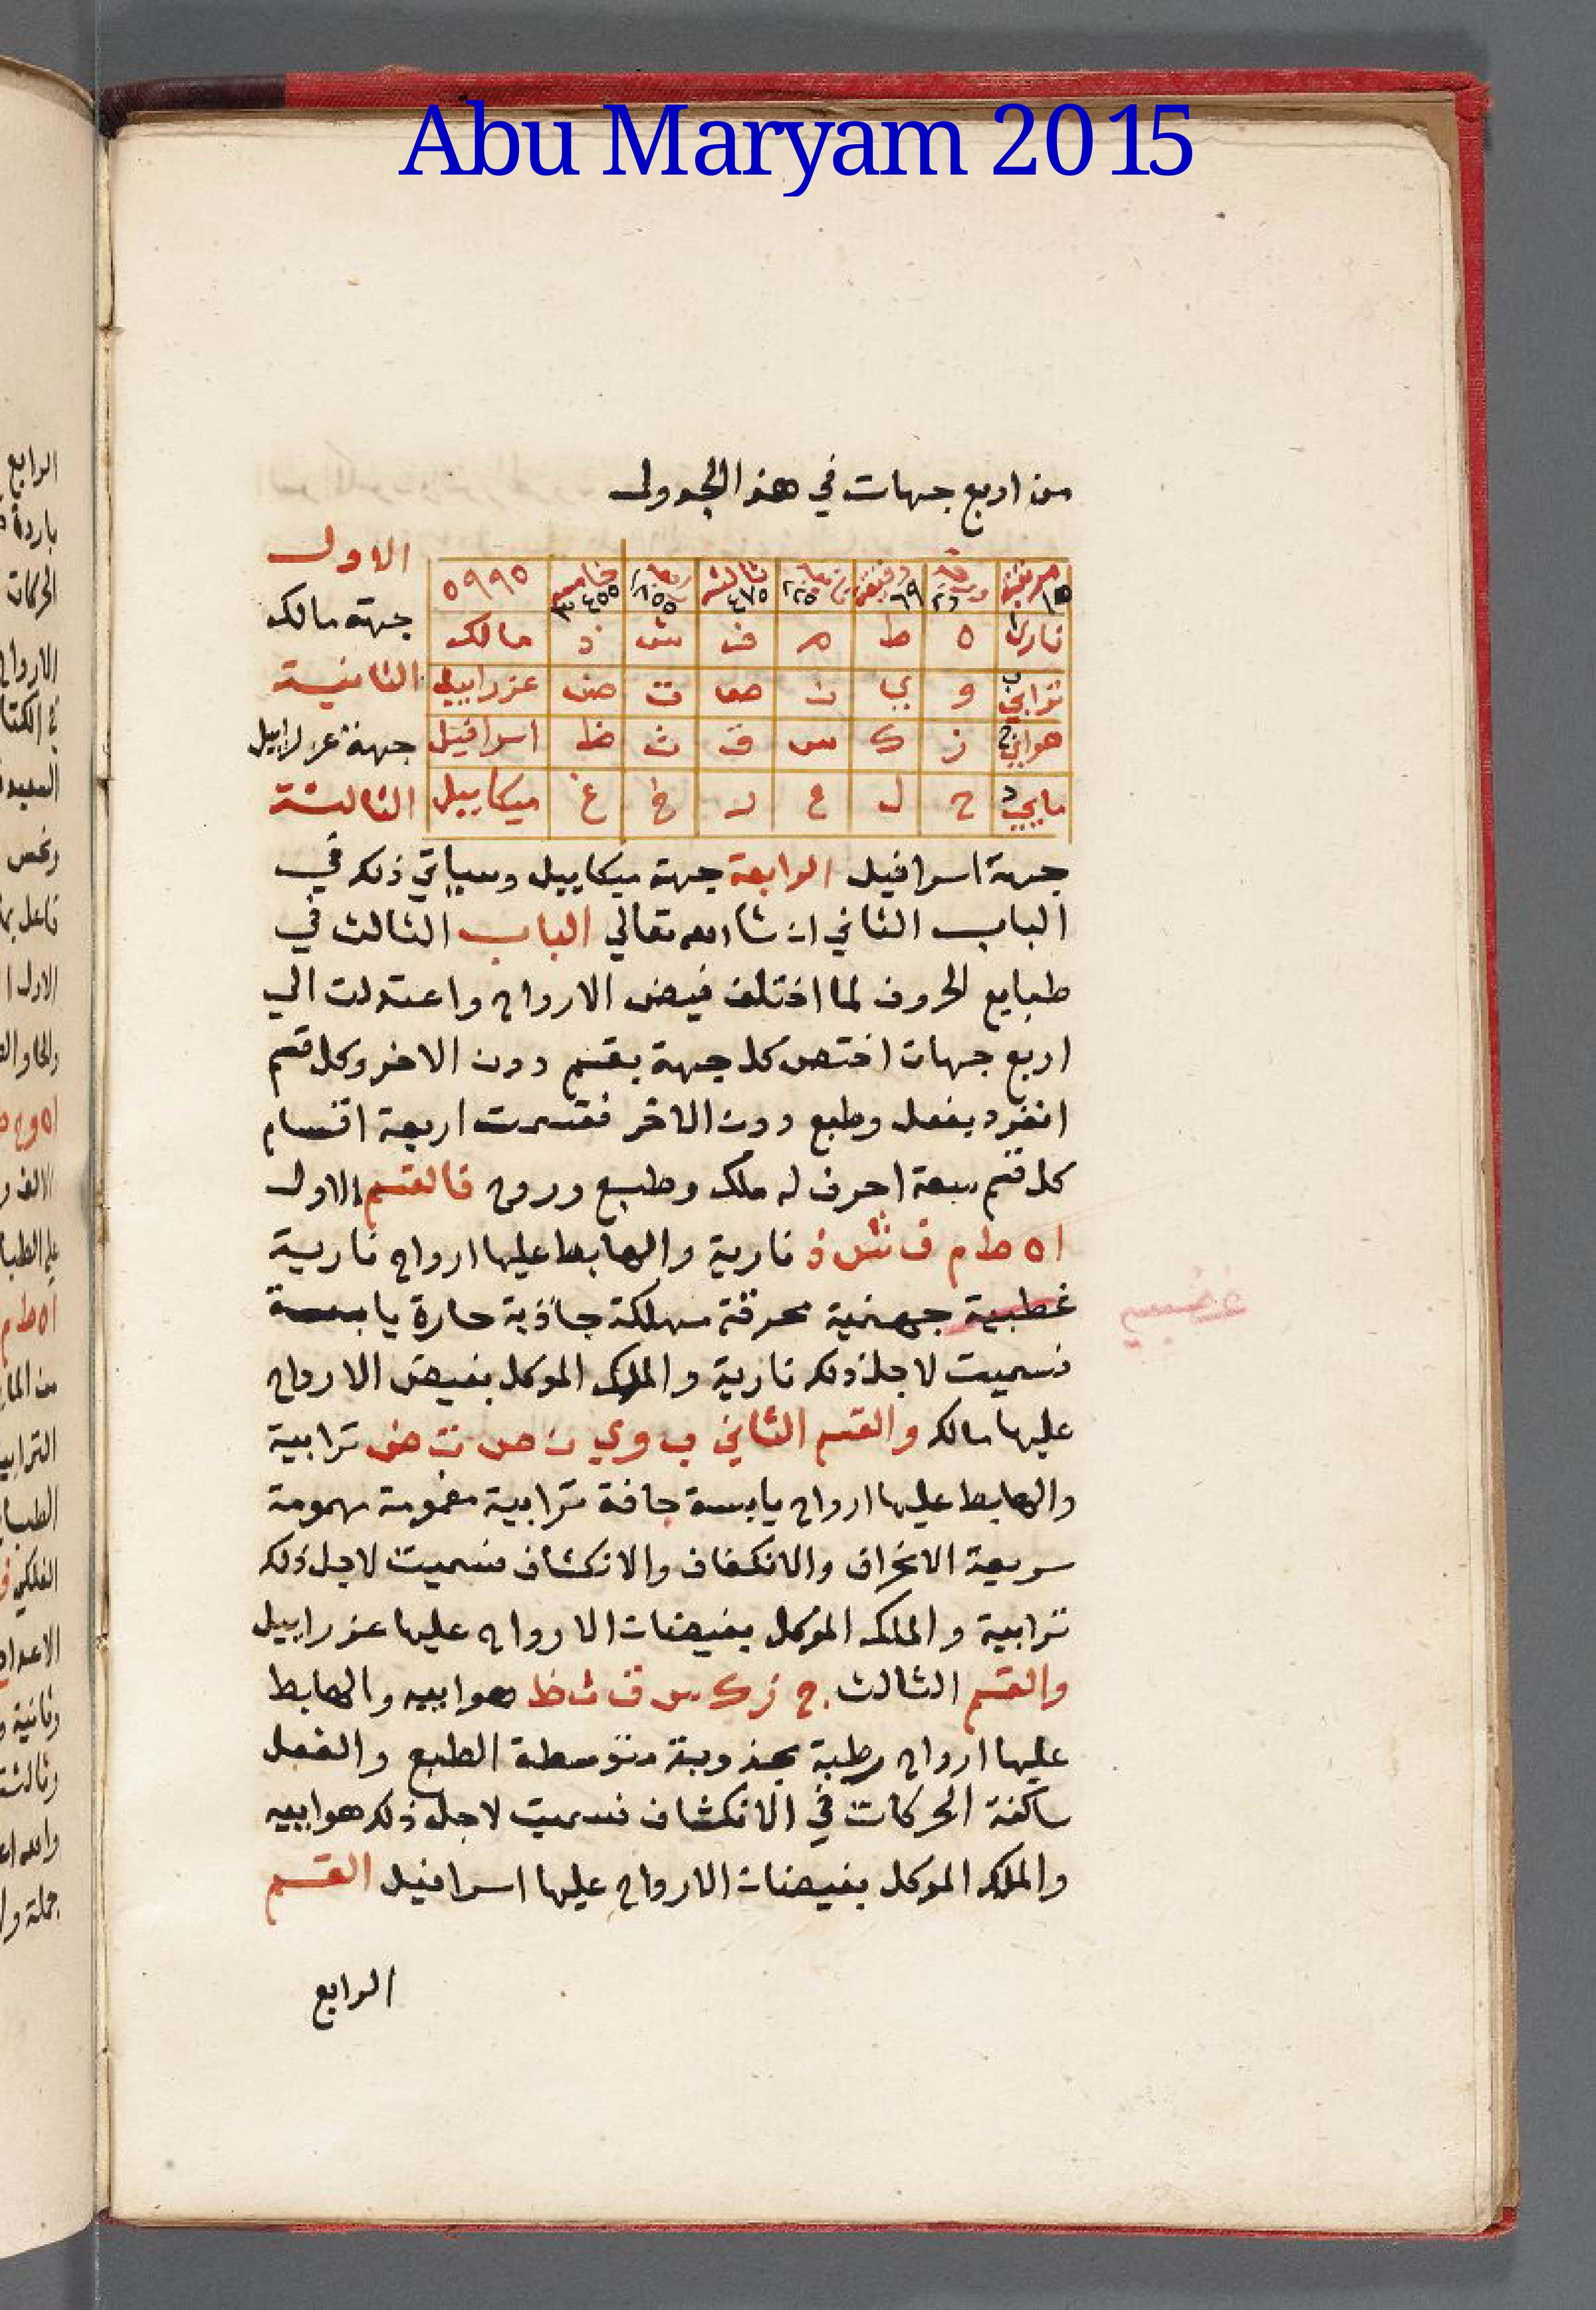 Abu Maryam 2015
من اربع جهات في هذا الجدول
الاول
جهة مالك
الثانية
جهة عزرابيل
الثالثة
مرتبة ١٥ درجة ٢٦ دقيقة ٦٩ ثانية ثالثة ٤٧٥ رابعة خامسة ٥٩٩٥
ناري ا ه ط م ف ش ذ مالك
ترابي ب و ي ن ص ت ض عزرابيل
هوائي ج ز ك س ق ث ظ اسرافيل
مايي د ح ل ع ر خ غ ميكاييل
جهة اسرافيل الرابعة جهة ميكاييل وسياتي ذلك في
الباب الثاني ان شا الله تعالي الباب الثالث في
طبايع الحروف لما اختلف فيض الارواح واعتدلت الي
اربع جهات اختص كل جهة بقسم دون الاخر وكل قسم
انفرد بفعل وطبع دون الاخر فقسمت اربعة اقسام
كل قسم سبعة احرف له ملك وطبع وروح فالقسم الاول
ا ه ط م ف ش ذ نارية والهابط عليها ارواح نارية
غطبية جهنمية محرقة مهلكة جاذبة حارة يابسة
فسميت لاجل ذلك نارية والملك الموكل بفيض الارواح
عليها مالك والقسم الثاني ب و ي ن ص ت ض ترابية
والهابط عليها ارواح يابسة جافة ترابية مغمومة مهمومة
سريعة الانحراف والانكفاف والانكشاف فسميت لاجل ذلك
ترابية والملك الموكل بفيضات الارواح عليها عزرابيل
والقسم الثالث ج ز ك س ق ث ظ هوابيه والهابط
عليها ارواح رطبة مجذوبة متوسطة الطبع والفعل
ساكنة الحركات في الانكشاف فسميت لاجل ذلك هوابيه
والملك الموكل بفيضات الارواح عليها اسرافيل القسم
الرابع